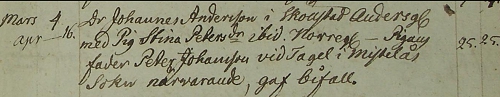 Mars 4 Dr Johannes Andersson i Skogstad Andersg
apr 16. med Pig Stina Petersdr ibid. Norreg — Pigans
fader Peter Johansson vid Tagel i Mistelås 25. 25.
Sokn närvarande, gaf bifall.